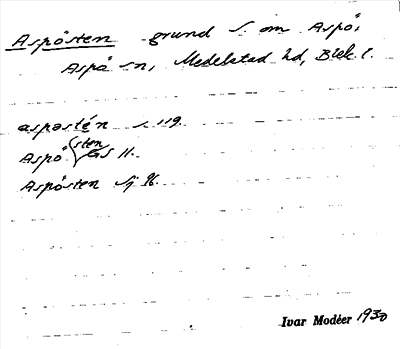 Aspösten grund S. om Aspö,
Aspö sn, Medelstad hd, Blek. l.
aspostén s. 119.
Aspö sten GS 11.
Aspösten Sj 96.
Ivar Modéer 1930